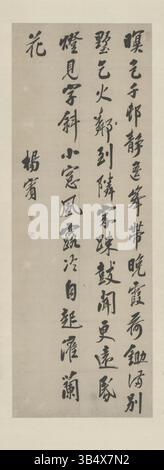 暝色千邨靜遙峯帶晚霞荷鋤歸別
墅乞火鄰到隣家疎鼓聞更遠
燈見字斜小窓風露冷自起灌蘭
花
楊賓
alamy - 3B4X7N2